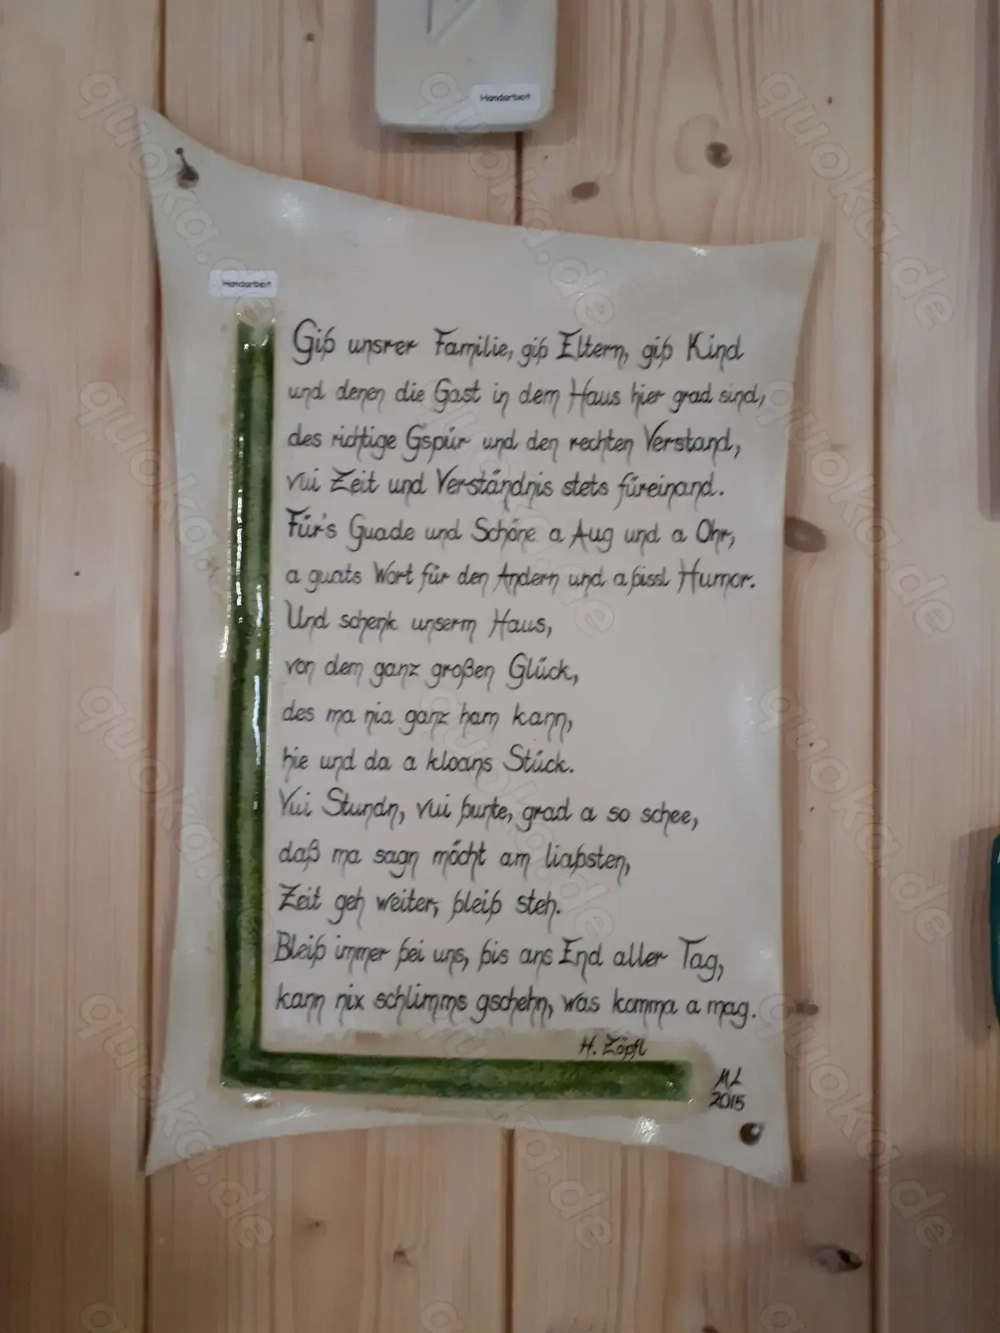 Handarbeit
Handarbeit
Gib unsrer Familie, gib Eltern, gib Kind
und denen die Gast in dem Haus hier grad sind,
des richtige Gspür und den rechten Verstand,
vui Zeit und Verständnis stets füreinand.
Für's Guade und Schöne a Aug und a Ohr,
a guats Wort für den Andern und a bissl Humor.
Und schenk unserm Haus,
von dem ganz großen Glück,
des ma nia ganz ham kann,
hie und da a kloans Stück.
Vui Stundn, vui bunte, grad a so schee,
daß ma sagn möcht am liabsten,
Zeit geh weiter, bleib steh.
Bleib immer bei uns, bis ans End aller Tag,
kann nix schlimms gschehn, was komma a mag.
H. Zöpfl
ML
2015
quoka.de